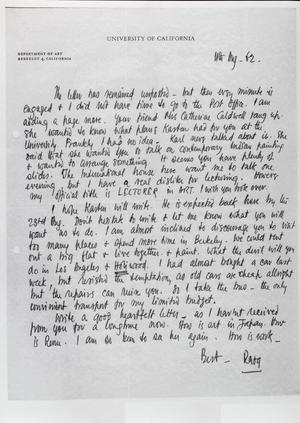 UNIVERSITY OF CALIFORNIA
DEPARTMENT OF ART
BERKELEY 4, CALIFORNIA
Aug - 62.
The letter has remained unposted - but then every minute is
engaged & I did not have time to go to the Post Office. I am
adding a page more. Your friend Mrs Catherine Caldwell rang up.
She wanted to know what plans Karl has for you at the
University. Frankly I had no idea. Karl never talked about it. She
said that she wanted you to talk on contemporary Indian painting
& wants to arrange something. It seems you have plenty of
slides. The International house here want me to talk one
evening but I have a real dislike for lecturing. However
my official title is LECTURER in ART. I wish you took over.
I hope Karl will write. He is expected back here by the
23rd Aug. Don't hesitate to write & let me know what you will
want us to do. I am almost inclined to discourage you to visit
too many places & spend more time in Berkeley. We could rent
out a big flat & live together & paint. What the devil will you
do in Los Angeles & Hollywood. I had almost bought a car last
week, but resisted the temptation, as old cars are cheap allright
but the repairs can ruin you. So I take the bus - the only
convenient transport for my limited budget.
Write a good heartfelt letter - as I have not received
from you for a longtime now. How is art in Japan. How
is Renu. I am so keen to see her again. How is work -
Best -